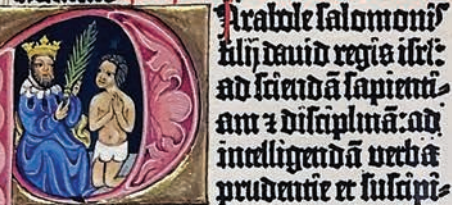 Parabole salomonis
filij david regis isrl:
ad sciendā sapienti-
am ⁊ disciplinā: ad
intelligendā verba
prudentie et suscipi-